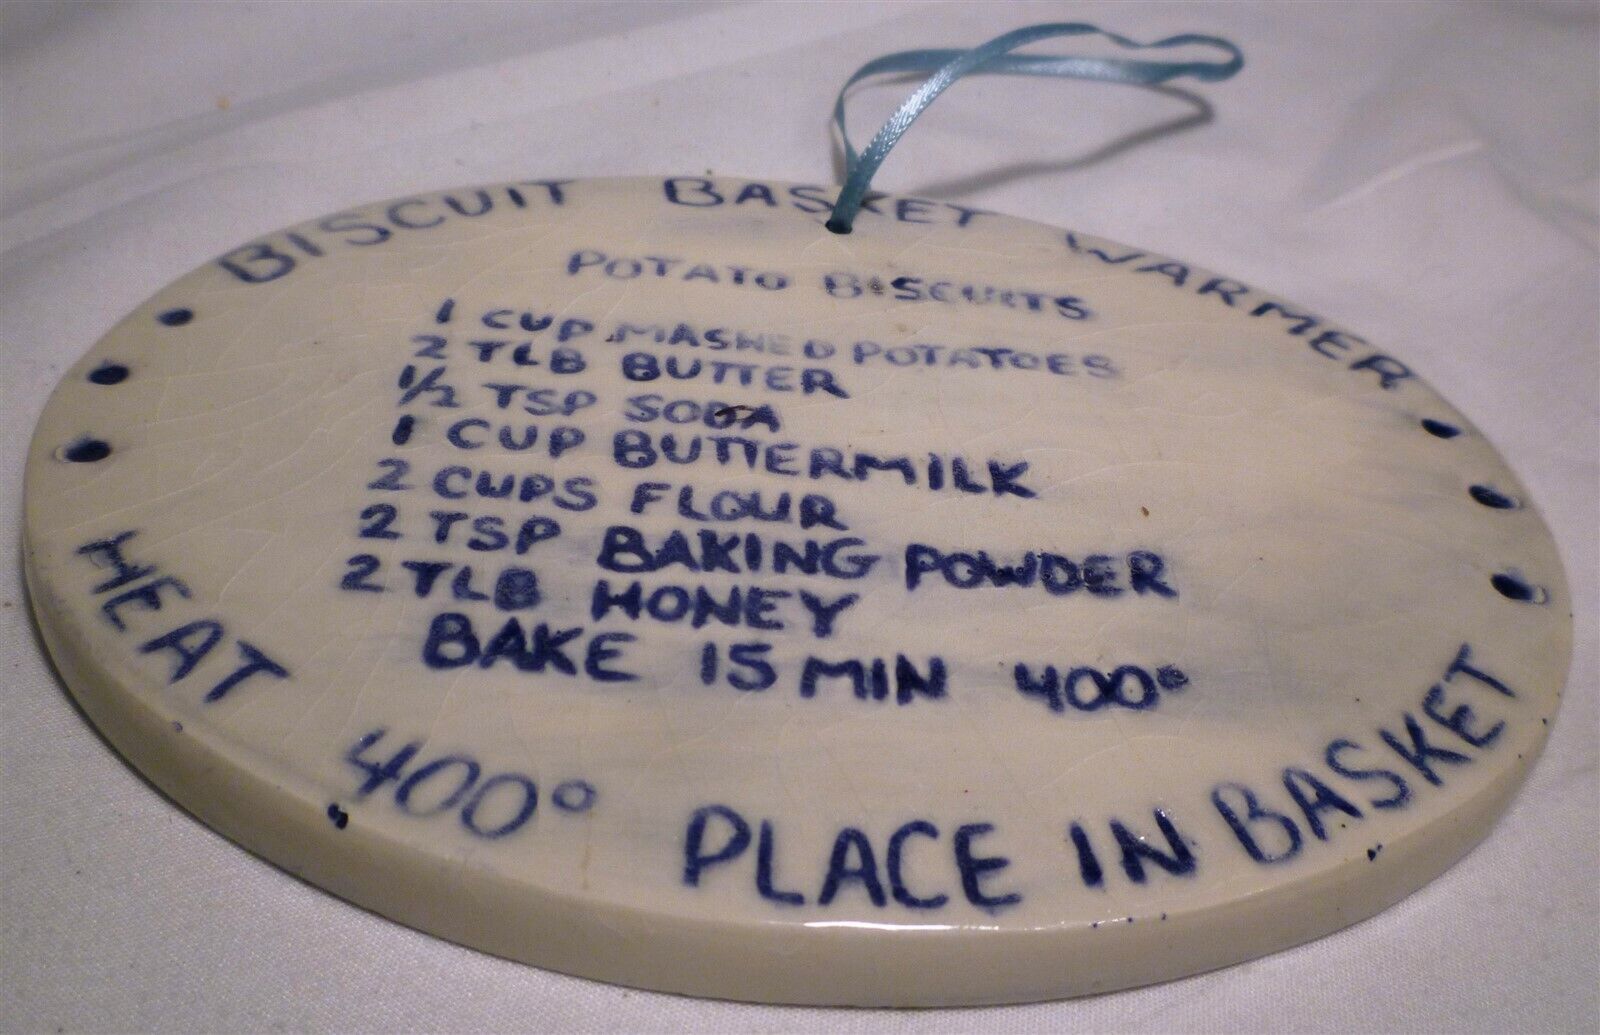 BISCUIT BASKET WARMER
POTATO BISCUITS
1 CUP MASHED POTATOES
2 TLB BUTTER
1/2 TSP SODA
1 CUP BUTTERMILK
2 CUPS FLOUR
2 TSP BAKING POWDER
2 TLB HONEY
BAKE 15 MIN 400°
HEAT 400° PLACE IN BASKET